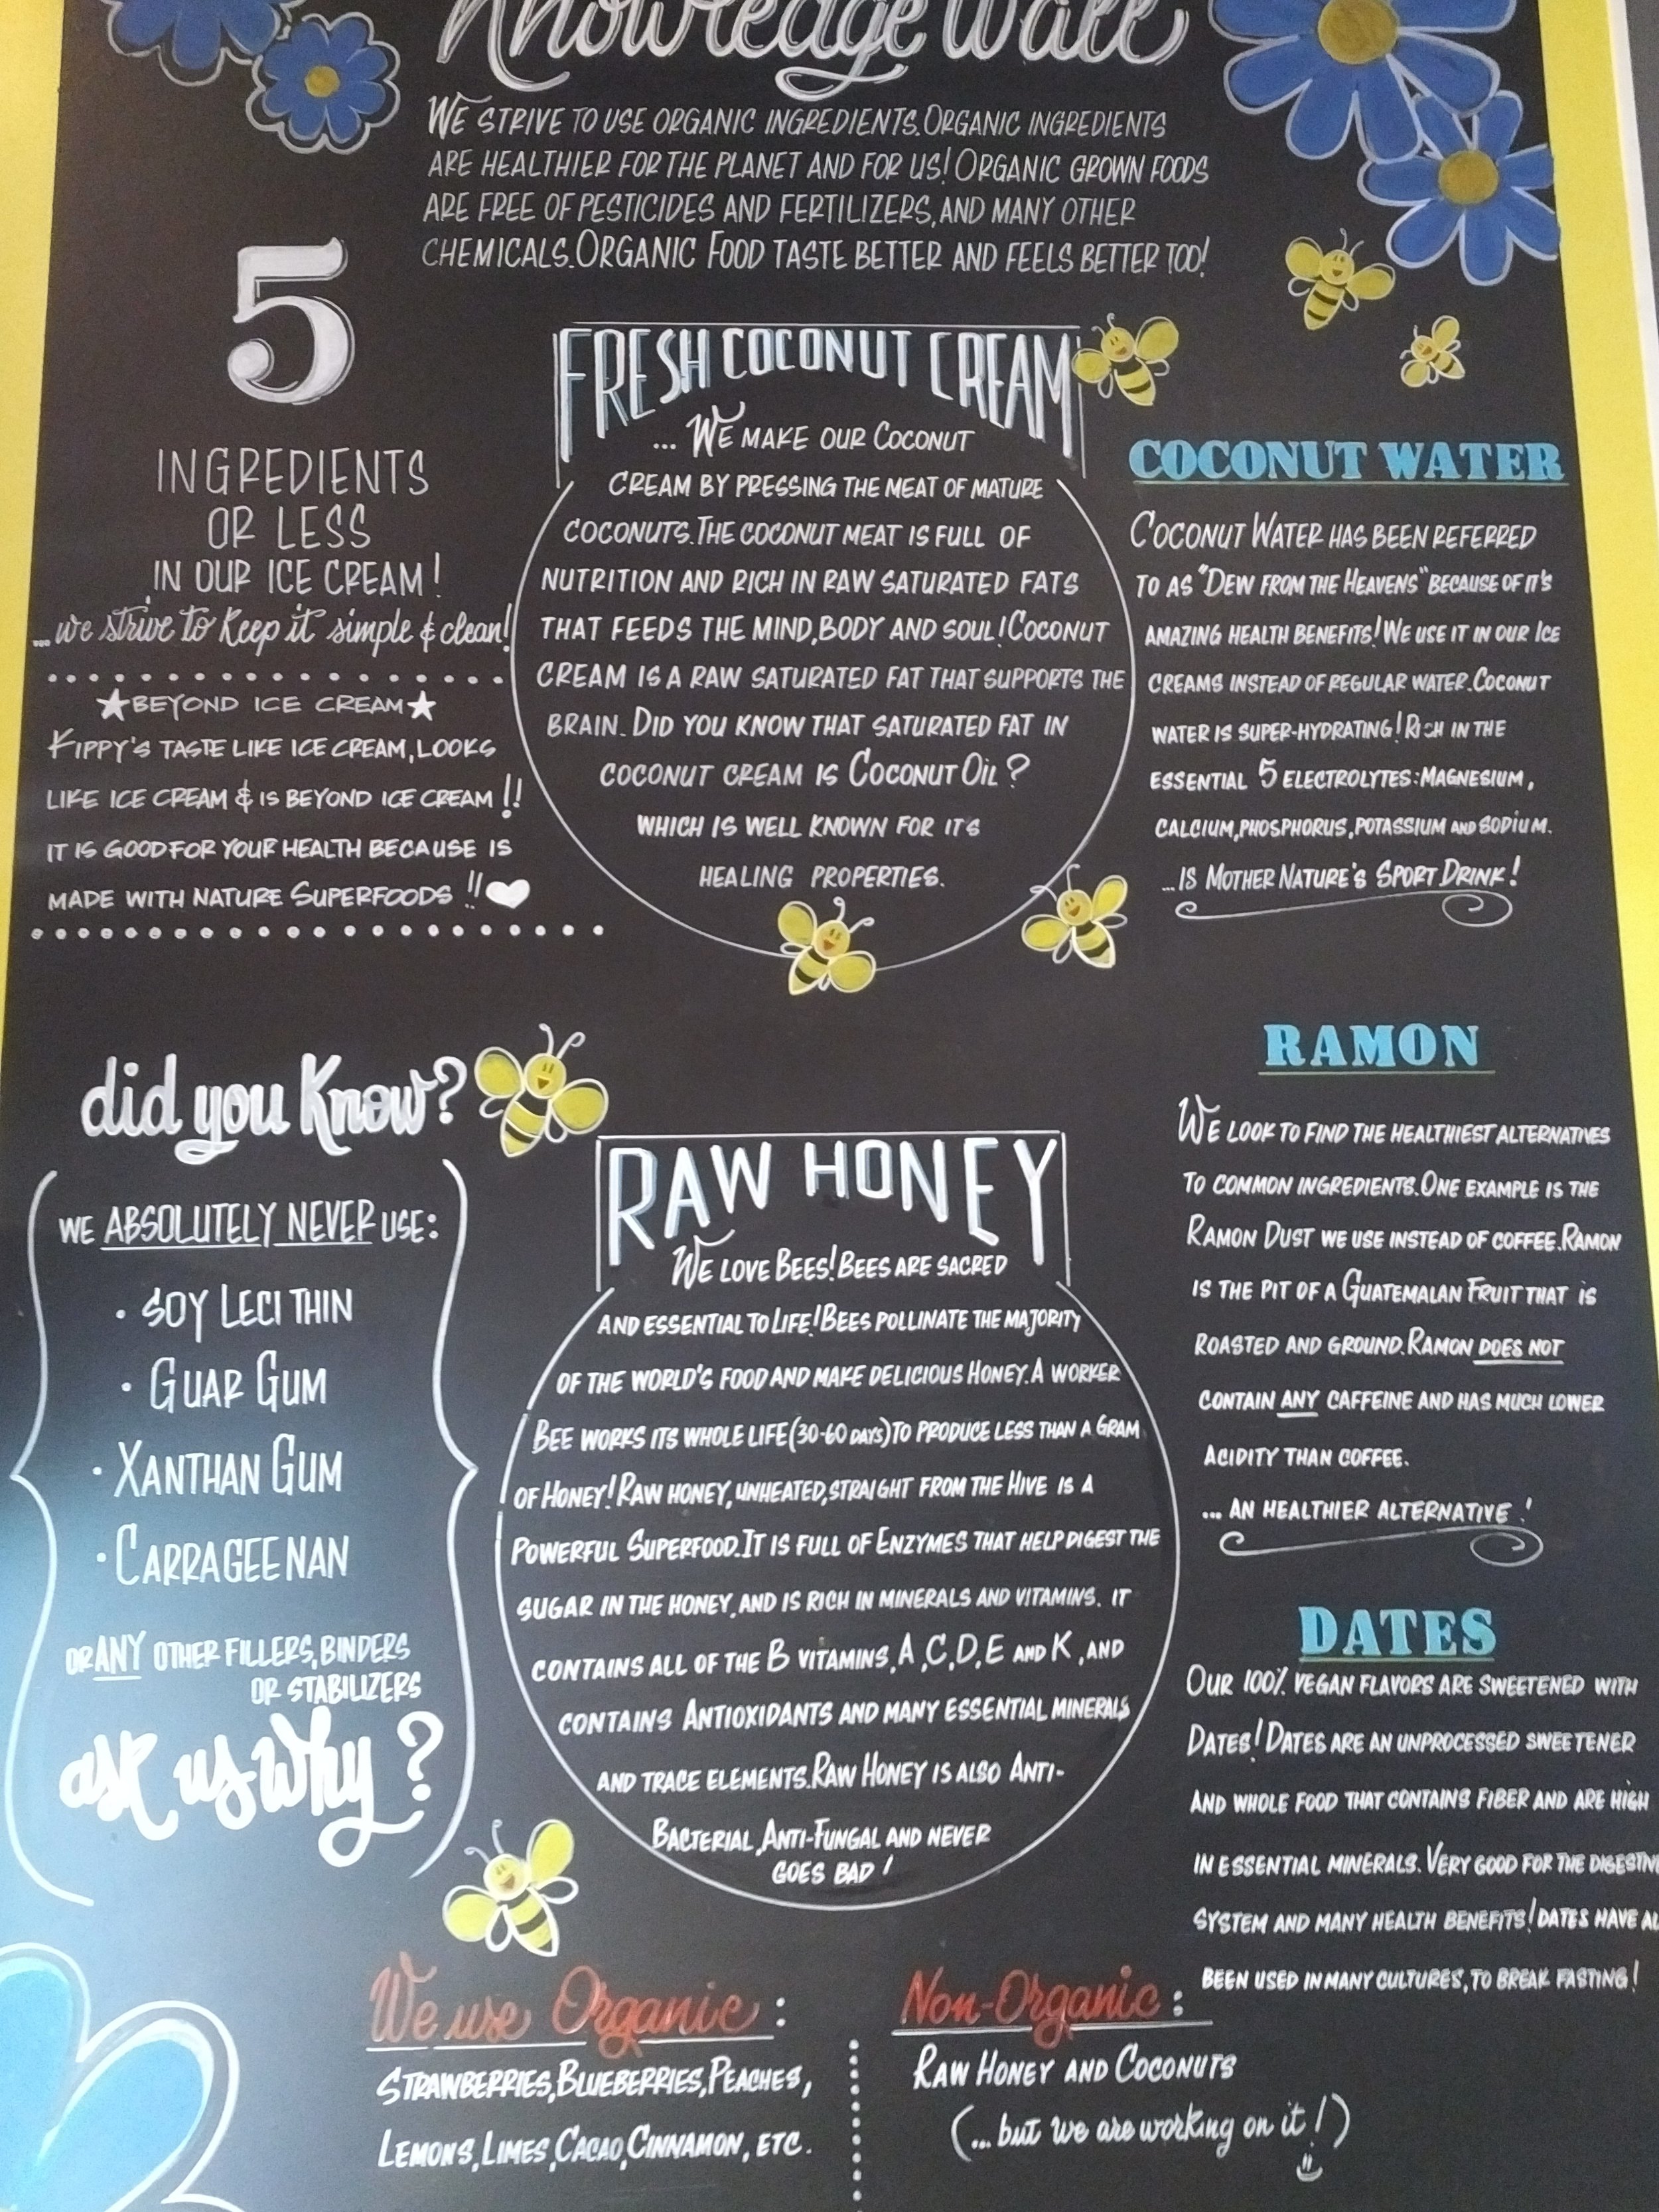 Knowledge Wall
WE STRIVE TO USE ORGANIC INGREDIENTS. ORGANIC INGREDIENTS
ARE HEALTHIER FOR THE PLANET AND FOR US! ORGANIC GROWN FOODS
ARE FREE OF PESTICIDES AND FERTILIZERS, AND MANY OTHER
CHEMICALS. ORGANIC FOOD TASTE BETTER AND FEELS BETTER TOO!
5
INGREDIENTS
OR LESS
IN OUR ICE CREAM!
...we strive to keep it simple & clean!
★BEYOND ICE CREAM★
KIPPY'S TASTE LIKE ICE CREAM, LOOKS
LIKE ICE CREAM & IS BEYOND ICE CREAM!!
IT IS GOOD FOR YOUR HEALTH BECAUSE IS
MADE WITH NATURE SUPERFOODS!!♥
FRESH COCONUT CREAM
... WE MAKE OUR COCONUT
CREAM BY PRESSING THE MEAT OF MATURE
COCONUTS. THE COCONUT MEAT IS FULL OF
NUTRITION AND RICH IN RAW SATURATED FATS
THAT FEEDS THE MIND, BODY AND SOUL! COCONUT
CREAM IS A RAW SATURATED FAT THAT SUPPORTS THE
BRAIN. DID YOU KNOW THAT SATURATED FAT IN
COCONUT CREAM IS COCONUT OIL?
WHICH IS WELL KNOWN FOR ITS
HEALING PROPERTIES.
COCONUT WATER
COCONUT WATER HAS BEEN REFERRED
TO AS "DEW FROM THE HEAVENS" BECAUSE OF IT'S
AMAZING HEALTH BENEFITS! WE USE IT IN OUR ICE
CREAMS INSTEAD OF REGULAR WATER. COCONUT
WATER IS SUPER-HYDRATING! RICH IN THE
ESSENTIAL 5 ELECTROLYTES: MAGNESIUM,
CALCIUM, PHOSPHORUS, POTASSIUM AND SODIUM.
...IS MOTHER NATURE'S SPORT DRINK!
did you know?
WE ABSOLUTELY NEVER USE:
· SOY LECITHIN
· GUAR GUM
· XANTHAN GUM
· CARRAGEENAN
OR ANY OTHER FILLERS, BINDERS
OR STABILIZERS
ask us why?
RAW HONEY
WE LOVE BEES! BEES ARE SACRED
AND ESSENTIAL TO LIFE! BEES POLLINATE THE MAJORITY
OF THE WORLD'S FOOD AND MAKE DELICIOUS HONEY. A WORKER
BEE WORKS ITS WHOLE LIFE (30-60 DAYS) TO PRODUCE LESS THAN A GRAM
OF HONEY! RAW HONEY, UNHEATED, STRAIGHT FROM THE HIVE IS A
POWERFUL SUPERFOOD. IT IS FULL OF ENZYMES THAT HELP DIGEST THE
SUGAR IN THE HONEY, AND IS RICH IN MINERALS AND VITAMINS. IT
CONTAINS ALL OF THE B VITAMINS, A, C, D, E AND K, AND
CONTAINS ANTIOXIDANTS AND MANY ESSENTIAL MINERALS
AND TRACE ELEMENTS. RAW HONEY IS ALSO ANTI-
BACTERIAL, ANTI-FUNGAL AND NEVER
GOES BAD!
RAMON
WE LOOK TO FIND THE HEALTHIEST ALTERNATIVES
TO COMMON INGREDIENTS. ONE EXAMPLE IS THE
RAMON DUST WE USE INSTEAD OF COFFEE. RAMON
IS THE PIT OF A GUATEMALAN FRUIT THAT IS
ROASTED AND GROUND. RAMON DOES NOT
CONTAIN ANY CAFFEINE AND HAS MUCH LOWER
ACIDITY THAN COFFEE.
... AN HEALTHIER ALTERNATIVE!
DATES
OUR 100% VEGAN FLAVORS ARE SWEETENED WITH
DATES! DATES ARE AN UNPROCESSED SWEETENER
AND WHOLE FOOD THAT CONTAINS FIBER AND ARE HIGH
IN ESSENTIAL MINERALS. VERY GOOD FOR THE DIGESTIVE
SYSTEM AND MANY HEALTH BENEFITS! DATES HAVE
BEEN USED IN MANY CULTURES, TO BREAK FASTING!
We use Organic:
STRAWBERRIES, BLUEBERRIES, PEACHES,
LEMONS, LIMES, CACAO, CINNAMON, ETC.
Non-Organic:
RAW HONEY AND COCONUTS
(...but we are working on it!)